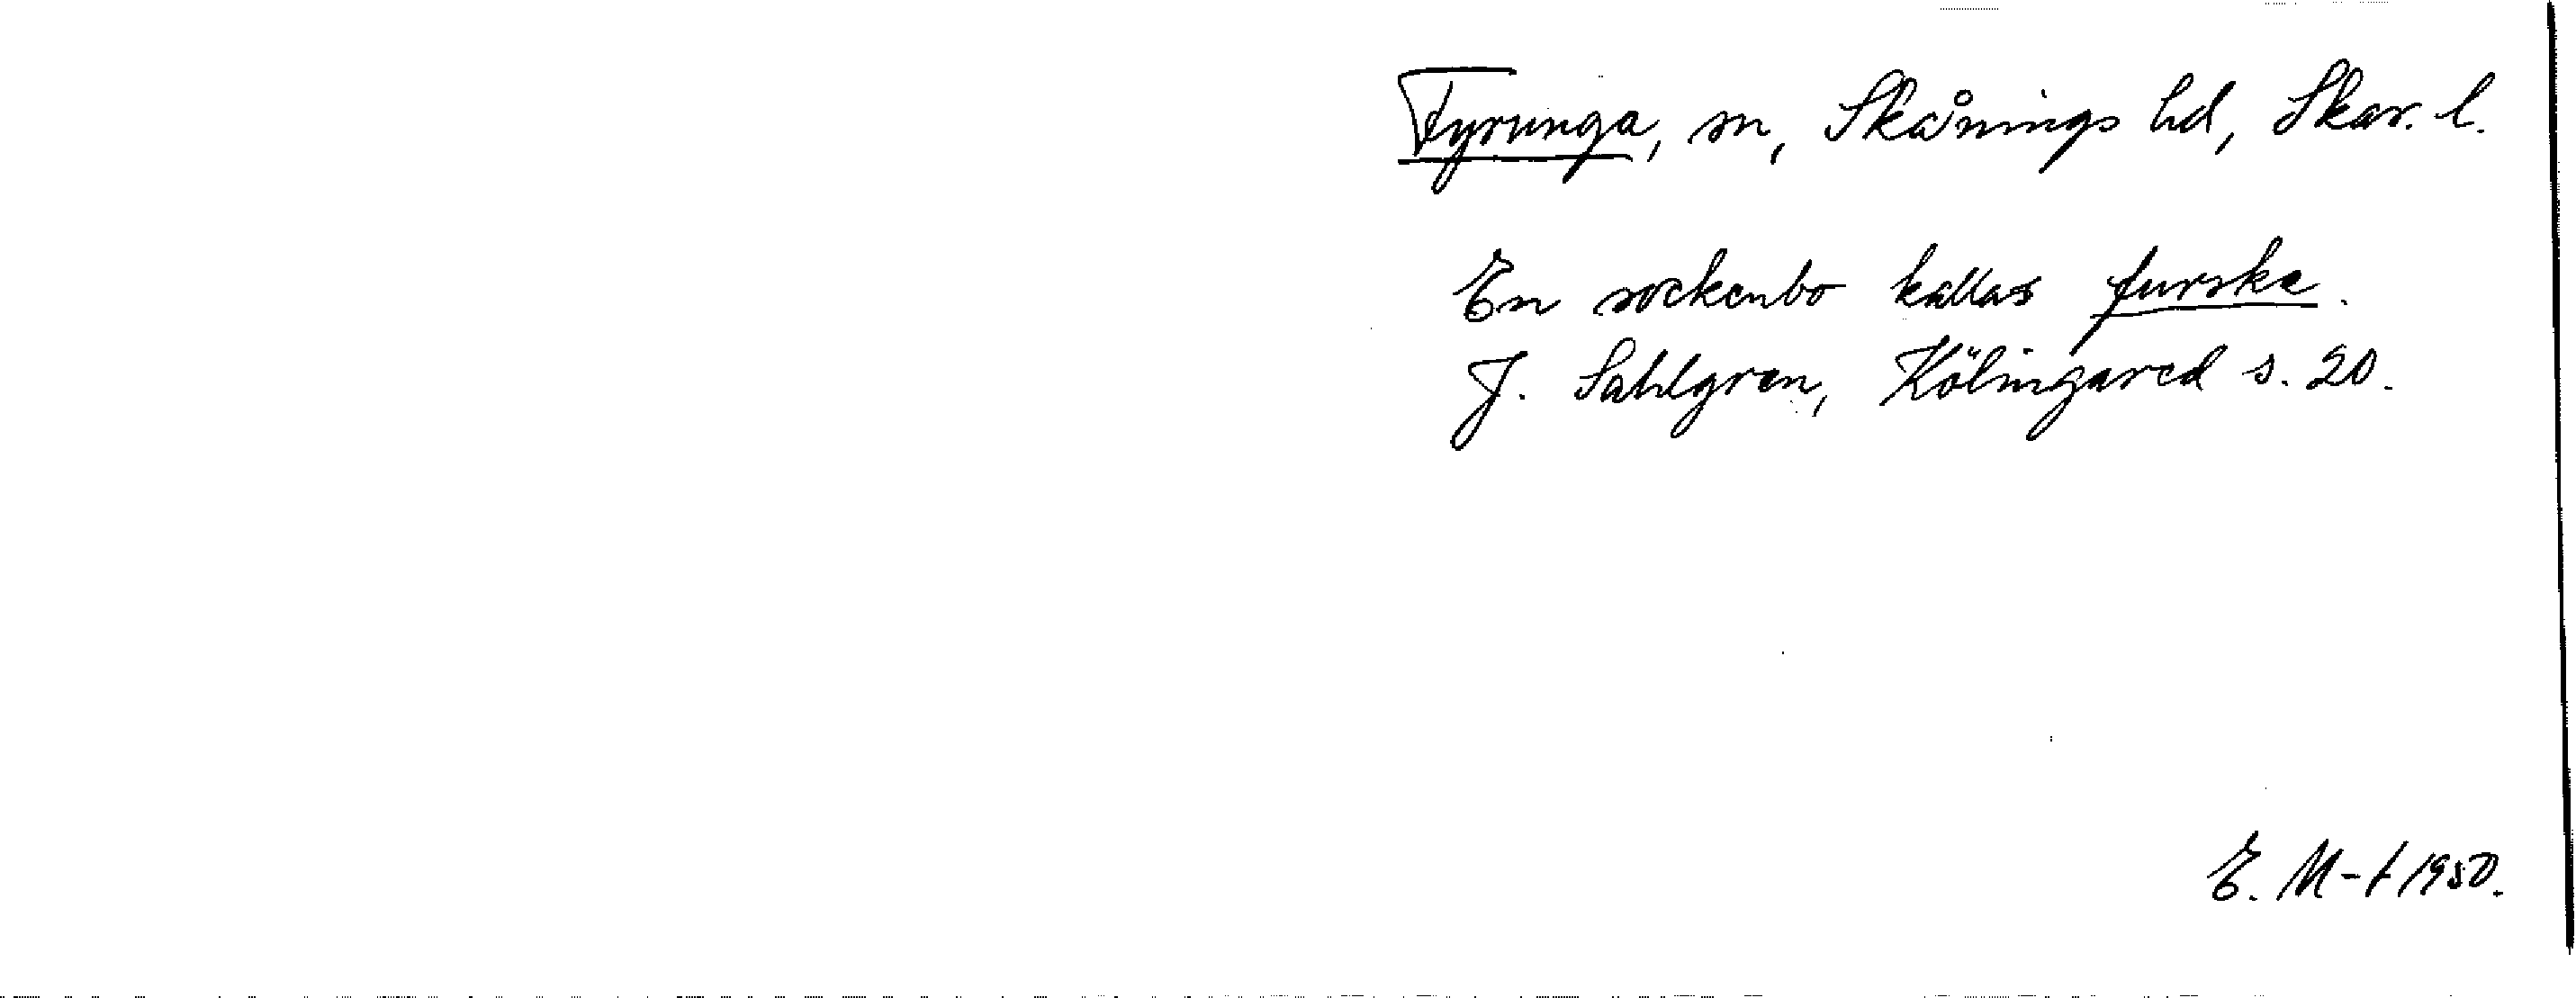 Fyrunga, sn, Skånings hd, Skar. l.
En sockenbo kallas furske.
J. Sahlgren, Kölingared s. 20.
E. M-t 1950.